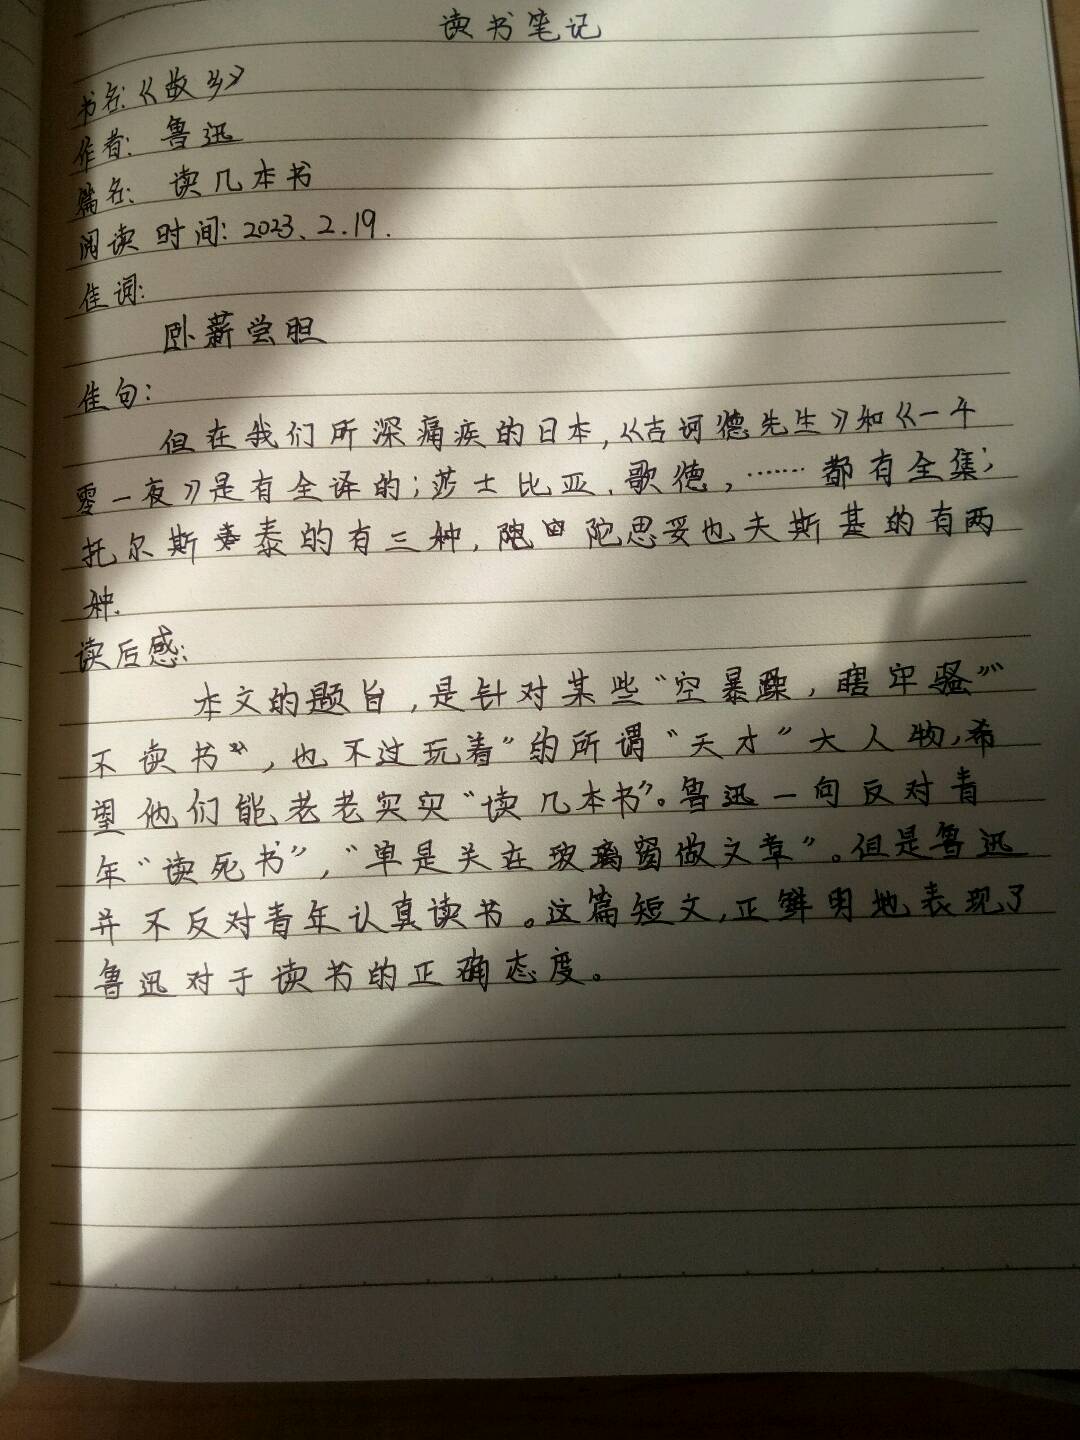 读书笔记
书名:《故乡》
作者: 鲁迅
篇名: 读几本书
阅读时间: 2023、2.19.
佳词:
卧薪尝胆
佳句:
但在我们所深痛疾的日本,《吉诃德先生》和《一千
零一夜》是有全译的;莎士比亚、歌德,……都有全集;
托尔斯泰的有三种,陀思妥也夫斯基的有两
种.
读后感:
本文的题旨,是针对某些“空暴躁,瞎牢骚”
不读书”,也不过玩着”的所谓“天才”大人物,希
望他们能老老实实“读几本书”。鲁迅一向反对青
年“读死书”,“单是关在玻璃窗做文章”。但是鲁迅
并不反对青年认真读书。这篇短文,正鲜明地表现了
鲁迅对于读书的正确态度。